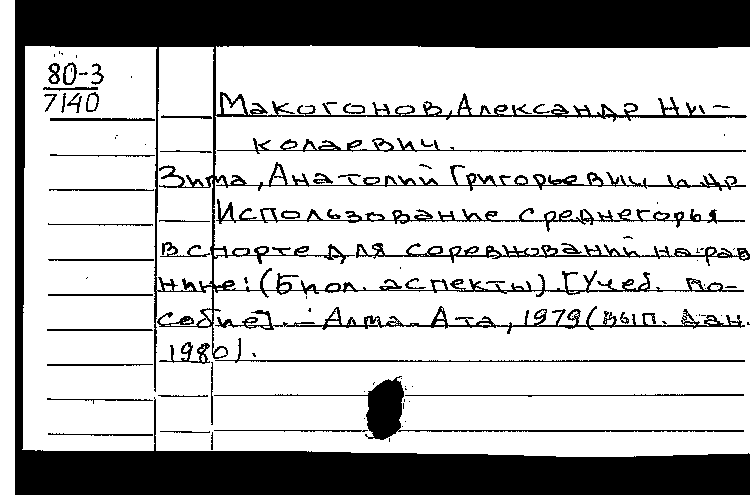 80-3
7140
Макогонов, Александр Ни-
колаевич.
Зима, Анатолий Григорьевич и др
Использование среднегорья
в спорте для соревнований на рав
нине: (Биол. аспекты). [Учеб. по-
собие]. - Алма-Ата, 1979 (вып. дан.
1980).